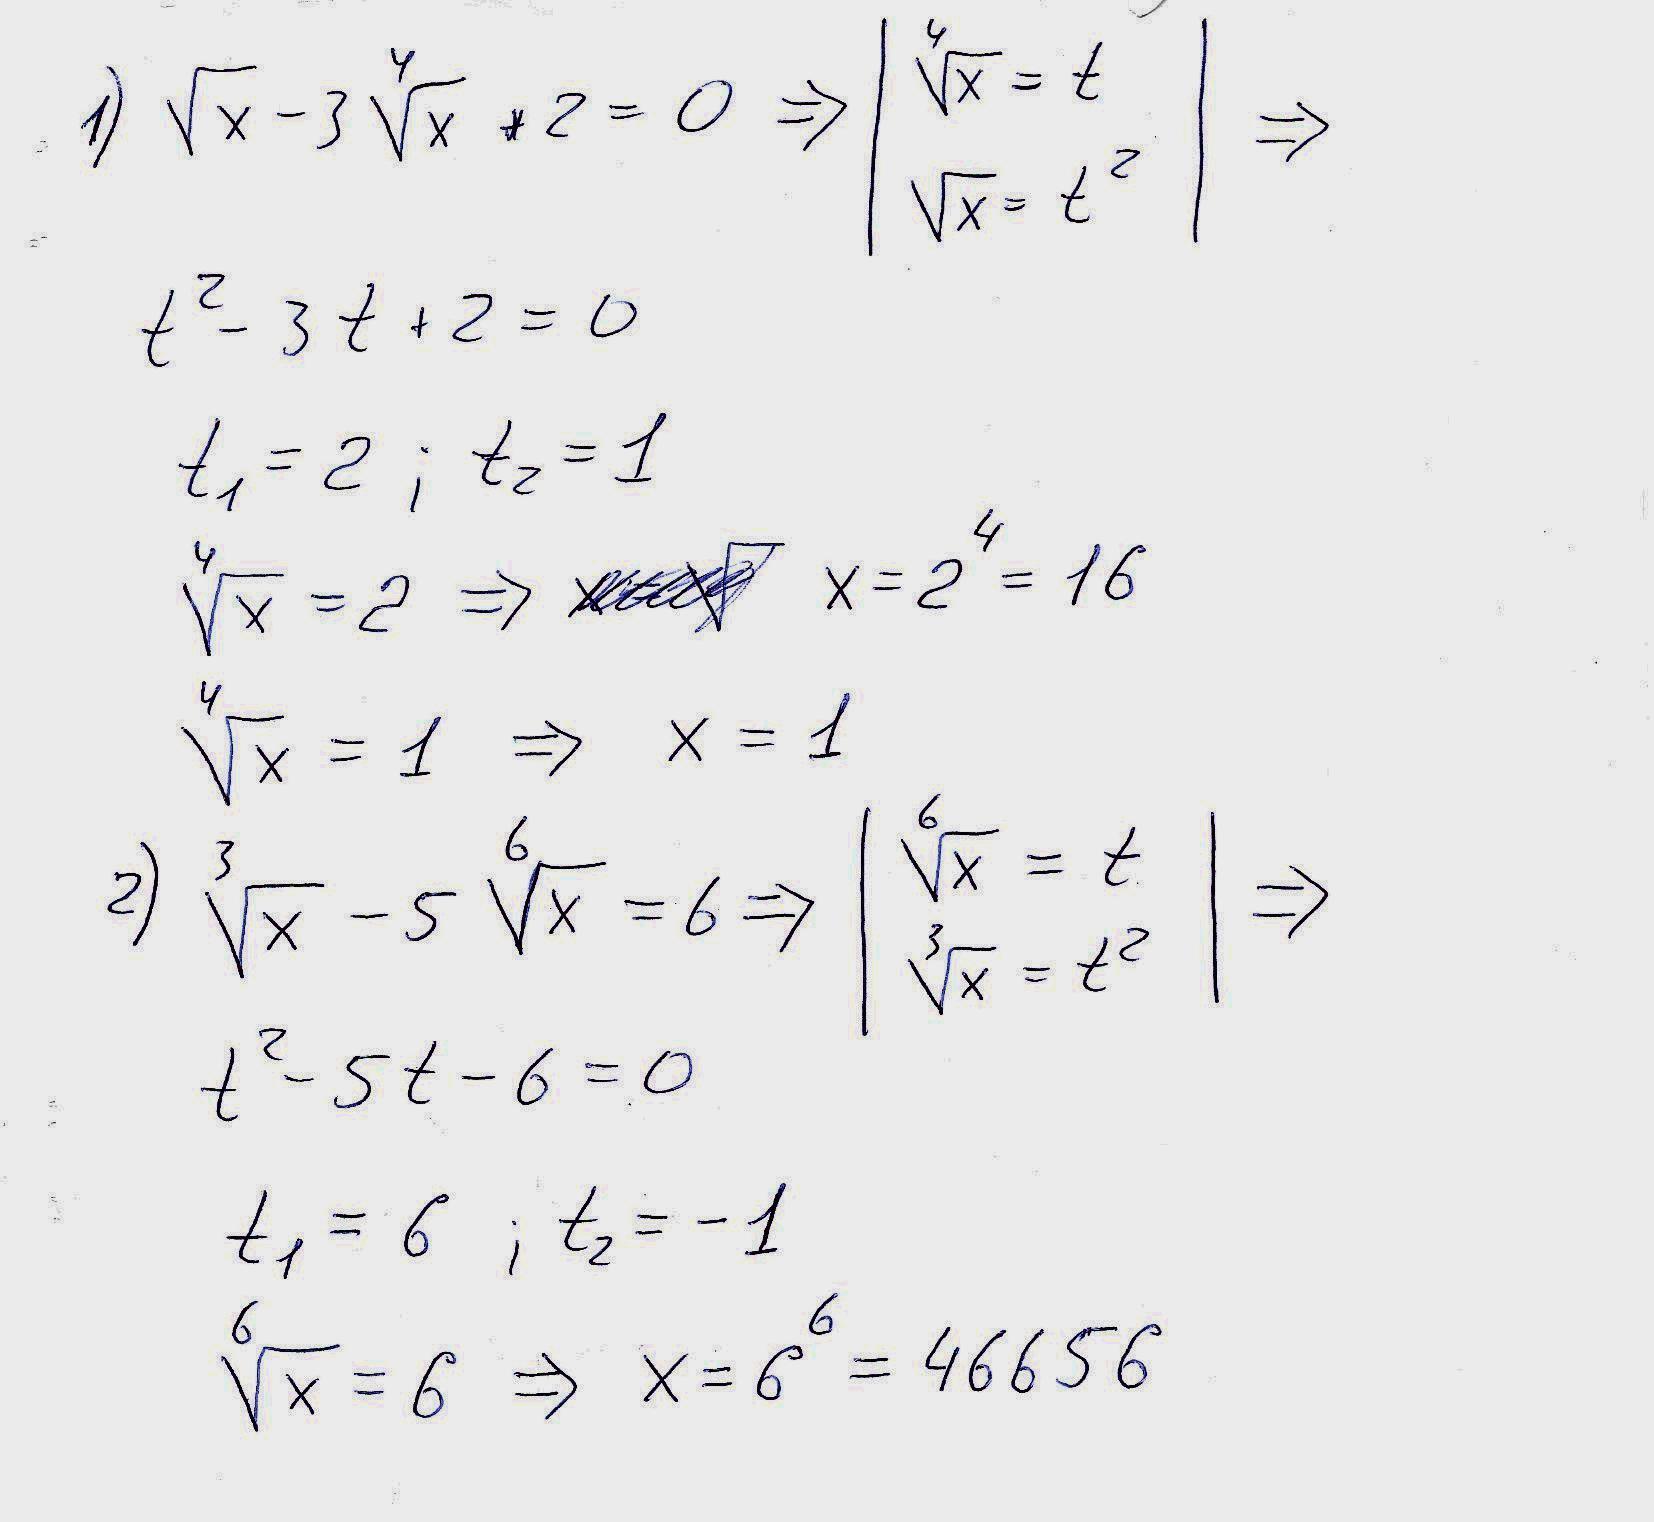 1) √x - 3 ⁴√x + 2 = 0 ⇒ | ⁴√x = t
√x = t² | ⇒
t² - 3t + 2 = 0
t₁ = 2 ; t₂ = 1
⁴√x = 2 ⇒ x = 2⁴ = 16
⁴√x = 1 ⇒ x = 1
2) ³√x - 5 ⁶√x = 6 ⇒ | ⁶√x = t
³√x = t² | ⇒
t² - 5t - 6 = 0
t₁ = 6 ; t₂ = -1
⁶√x = 6 ⇒ x = 6⁶ = 46656